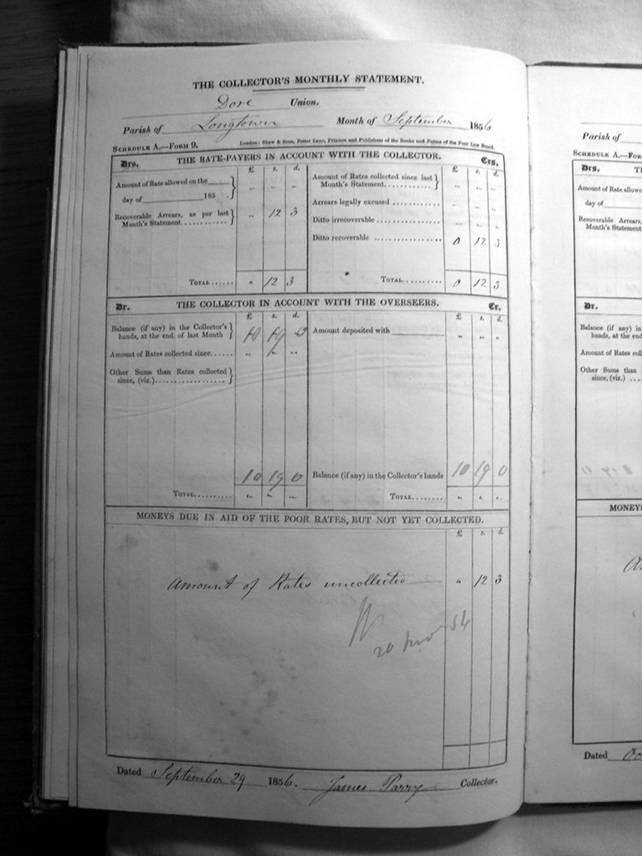 THE COLLECTOR'S MONTHLY STATEMENT.
Dore Union.
Parish of Longtown Month of September 1856
SCHEDULE A.—FORM 9. London: Shaw & Sons, Fetter Lane, Printers and Publishers of the Books and Forms of the Poor Law Board.
Drs. THE RATE-PAYERS IN ACCOUNT WITH THE COLLECTOR. Crs.
£ s. d. £ s. d.
Amount of Rate allowed on the
day of 185 .
Amount of Rates collected since last
Month's Statement
Arrears legally excused
Recoverable Arrears, as per last
Month's Statement " 12 3
Ditto irrecoverable
Ditto recoverable 0 12 3
TOTAL " 12 3 TOTAL 0 12 3
Dr. THE COLLECTOR IN ACCOUNT WITH THE OVERSEERS. Cr.
£ s. d. £ s. d.
Balance (if any) in the Collector's
hands, at the end of last Month 10 19 0
Amount deposited with
Amount of Rates collected since
Other Sums than Rates collected
since, (viz.)
10 19 0 Balance (if any) in the Collector's hands 10 19 0
TOTAL " " " TOTAL " " "
MONEYS DUE IN AID OF THE POOR RATES, BUT NOT YET COLLECTED.
£ s. d.
Amount of Rates uncollected " 12 3
20
Dated September 29 1856. James Parry Collector.
Parish of
SCHEDULE A.—FORM 9.
Drs.
Amount of Rate allowed
day of
Recoverable Arrears,
Month's Statement
Dr.
Balance (if any) in the
hands, at the end of
Amount of Rates
Other Sums than Rates
since, (viz.)
MONEYS
Dated